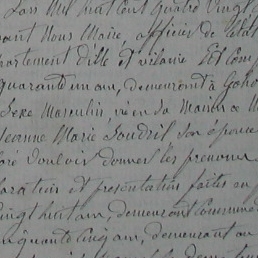 Lan Mil huit Cent Quatre Vingt
vant Nous Maire, officier de letat
partement Dille et vilaine Est Com
quarante un ans, demeurant à
Sexe Masculin, né en sa Maison a
Jeanne Marie Son épouse
laré vouloir donner les prenoms
laration et presentation faites en
vingt huit ans, demeurant
inquante cinq ans, demeurant au